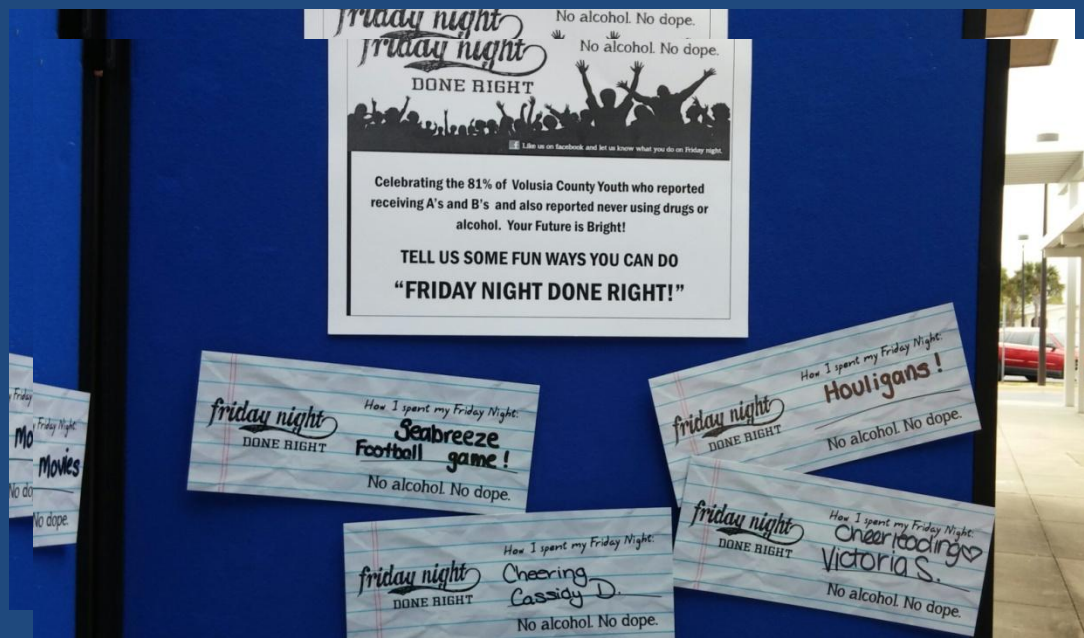 friday night
No alcohol. No dope.
friday night
No alcohol. No dope.
DONE RIGHT
Like us on facebook and let us know what you do on Friday night.
Celebrating the 81% of Volusia County Youth who reported
receiving A's and B's and also reported never using drugs or
alcohol. Your Future is Bright!
TELL US SOME FUN WAYS YOU CAN DO
"FRIDAY NIGHT DONE RIGHT!"
Friday
Mo
No do
Friday Night
Movies
No dope.
friday night
DONE RIGHT
How I spent my Friday Night:
Seabreeze
Football game!
No alcohol. No dope.
friday night
DONE RIGHT
How I spent my Friday Night:
Houligans!
No alcohol. No dope.
friday night
DONE RIGHT
How I spent my Friday Night:
Cheering
Cassidy D.
No alcohol. No dope.
friday night
DONE RIGHT
How I spent my Friday Night:
Cheerleading♡
Victoria S.
No alcohol. No dope.